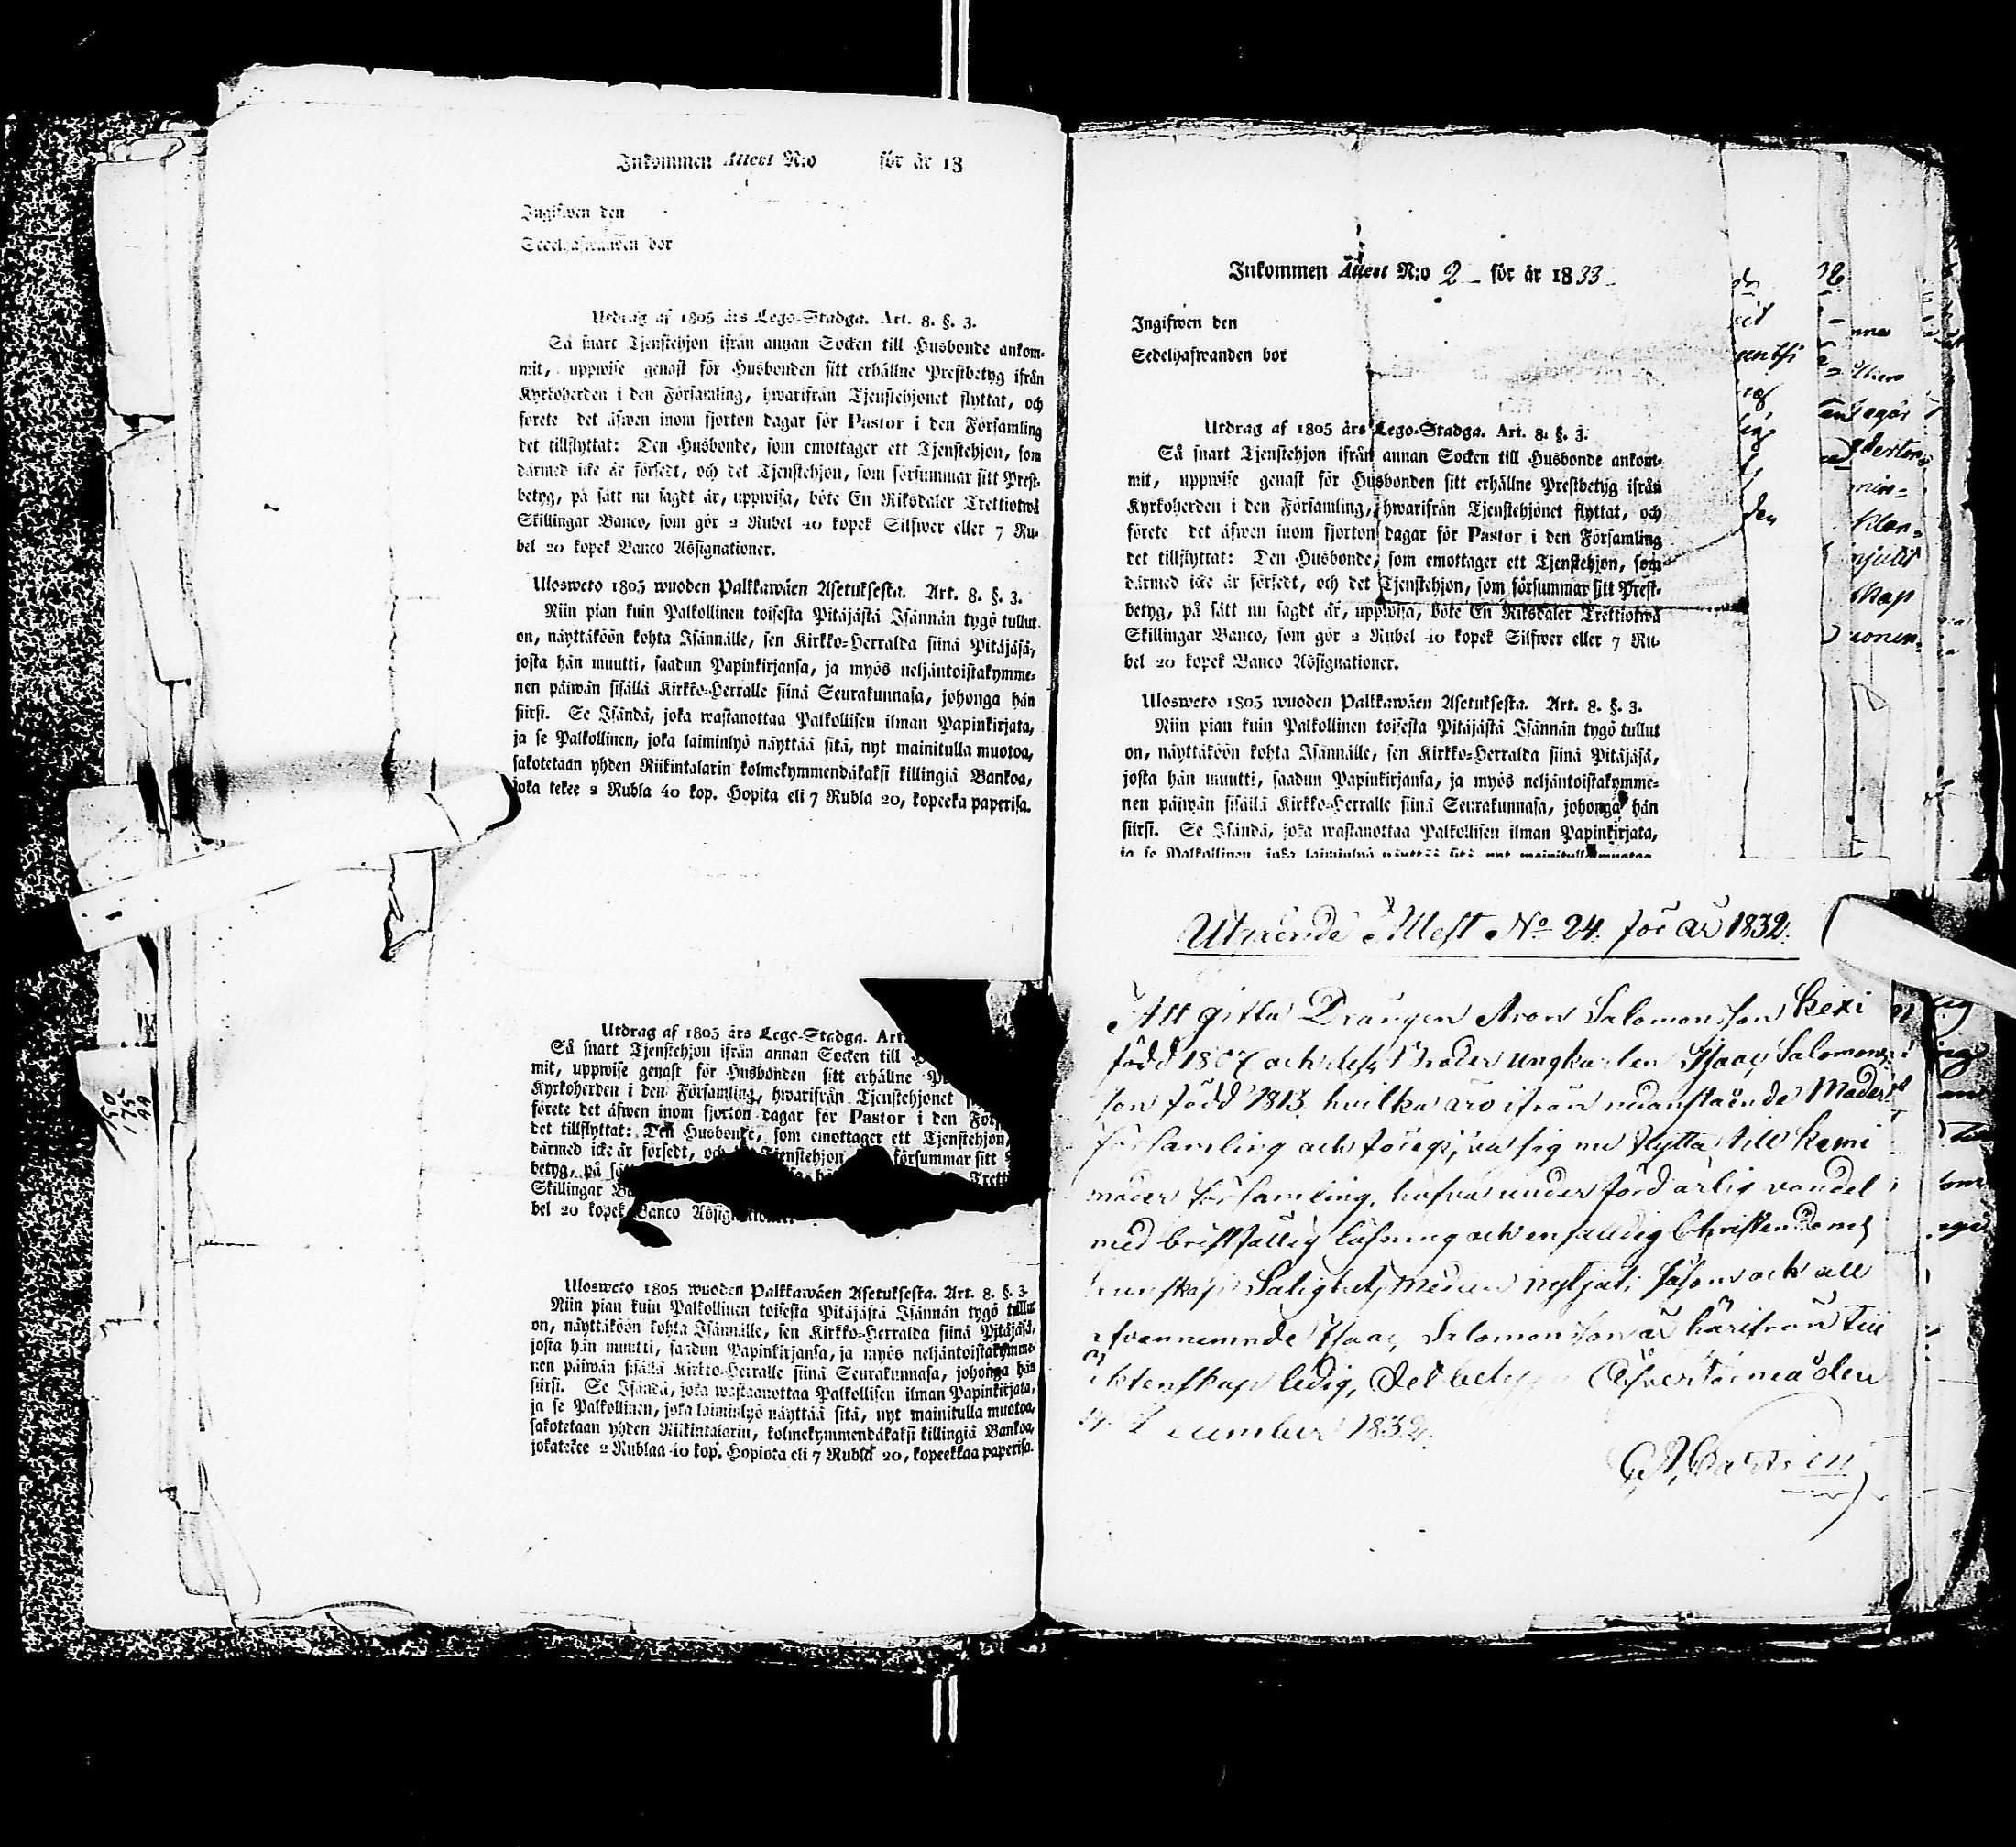 Inkommen Attest N:o för år 18
Ingifwen den
Sedelhafwanden bor
Utdrag af 1805 års Lego-Stadga. Art. 8. §. 3.
Så snart Tjenstehjon ifrån annan Socken till Husbonde ankom-
mit, uppwise genast för Husbonden sitt erhållne Prestbetyg ifrån
Kyrkoherden i den Församling, hwarifrån Tjenstehjonet flyttat, och
förete det äfwen inom fjorton dagar för Pastor i den Församling
det tillflyttat: Den Husbonde, som emottager ett Tjenstehjon, som
därmed icke är försedt, och det Tjenstehjon, som försummar sitt Prest-
betyg, på sätt nu sagdt är, uppwisa, böte En Riksdaler Trettiotwå
Skillingar Banco, som gör 2 Rubel 40 kopek Silfwer eller 7 Ru-
bel 20 kopek Banco Assignationer.
Ulosweto 1805 wuoden Palkkawäen Asetuksesta. Art. 8. §. 3.
Niin pian kuin Palkollinen toisesta Pitäjästä Isännän tygö tullut
on, näyttäköön kohta Isännälle, sen Kirkko-Herralda siinä Pitäjäsä,
josta hän muutti, saadun Papinkirjansa, ja myös neljäntoistakymme-
nen päiwän sisällä Kirkko-Herralle siinä Seurakunnasa, johonga hän
siirsi. Se Isändä, joka wastanottaa Palkollisen ilman Papinkirjata,
ja se Palkollinen, joka laiminlyö näyttää sitä, nyt mainitulla muotoa,
sakotetaan yhden Riikintalarin kolmekymmendäkaksi killingiä Bankoa,
joka tekee 2 Rubla 40 kop. Hopita eli 7 Rubla 20, kopeeka paperisa.
Utdrag af 1805 års Lego-Stadga. Art.
Så snart Tjenstehjon ifrån annan Socken till
mit, uppwise genast för Husbonden sitt erhållne
Kyrkoherden i den Församling, hwarifrån Tjenstehjonet
förete det äfwen inom fjorton dagar för Pastor i den
det tillflyttat: Den Husbonde, som emottager ett Tjenstehjon,
därmed icke är försedt, och Tjenstehjon försummar sitt
betyg, på
Skillingar
bel 20 kopek Banco
Ulosweto 1805 wuoden Palkkawäen Asetuksesta. Art. 8. §. 3.
Niin pian kuin Palkollinen toisesta Pitäjästä Isännän tygö tullut
on, näyttäköön kohta Isännälle, sen Kirkko-Herralda siinä Pitäjäsä,
josta hän muutti, saadun Papinkirjansa, ja myös neljäntoistakymme-
nen päiwän sisällä Kirkko-Herralle siinä Seurakunnasa, johonga hän
siirsi. Se Isändä, joka wastaanottaa Palkollisen ilman Papinkirjata,
ja se Palkollinen, joka laiminlyö näyttää sitä, nyt mainitulla muotoa,
sakotetaan yhden Riikintalarin, kolmekymmendäkaksi killingiä Bankoa,
joka tekee 2 Rublaa 40 kop. Hopiota eli 7 Rubla 20, kopeekkaa paperisa.
150
175
AA
Inkommen Attest N:o 2 för år 1833
Ingifwen den
Sedelhafwanden bor
Utdrag af 1805 års Lego-Stadga. Art. 8. §. 3.
Så snart Tjenstehjon ifrån annan Socken till Husbonde ankom-
mit, uppwise genast för Husbonden sitt erhållne Prestbetyg ifrån
Kyrkoherden i den Församling, hwarifrån Tjenstehjonet flyttat, och
förete det äfwen inom fjorton dagar för Pastor i den Församling
det tillflyttat: Den Husbonde, som emottager ett Tjenstehjon, som
därmed icke är försedt, och det Tjenstehjon, som försummar sitt Prest-
betyg, på sätt nu sagdt är, uppwisa, böte En Riksdaler Trettiotwå
Skillingar Banco, som gör 2 Rubel 40 kopek Silfwer eller 7 Ru-
bel 20 kopek Banco Assignationer.
Ulosweto 1805 wuoden Palkkawäen Asetuksesta. Art. 8. §. 3.
Niin pian kuin Palkollinen toisesta Pitäjästä Isännän tygö tullut
on, näyttäköön kohta Isännälle, sen Kirkko-Herralda siinä Pitäjäsä,
josta hän muutti, saadun Papinkirjansa, ja myös neljäntoistakymme-
nen päiwän sisällä Kirkko-Herralle siinä Seurakunnasa, johonga hän
siirsi. Se Isändä, joka wastanottaa Palkollisen ilman Papinkirjata,
ja se Palkollinen, joka laiminlyö näyttää sitä, nyt mainitulla muotoa
Utgående Attest No 24. för år 1832.
Att gifta Drängen Aron Salomonsson Kexi
född 1807 och dess broder ungkarlen Isaac Salomons-
son född 1813 hvilka äro ifrån nedanstående Moder
församling och föregifva sig nu flytta till Kemi
moder församling, hafva under förd ärlig vandel
med bristfällig läsning och enfaldig Christendoms
kunskap Salighets medlen nyttjat, såsom ock att
ofvannemnde Isaac Salomonsson är härifrån till
äktenskap ledig, Det betygar Öfvertorneå den
December 1832.